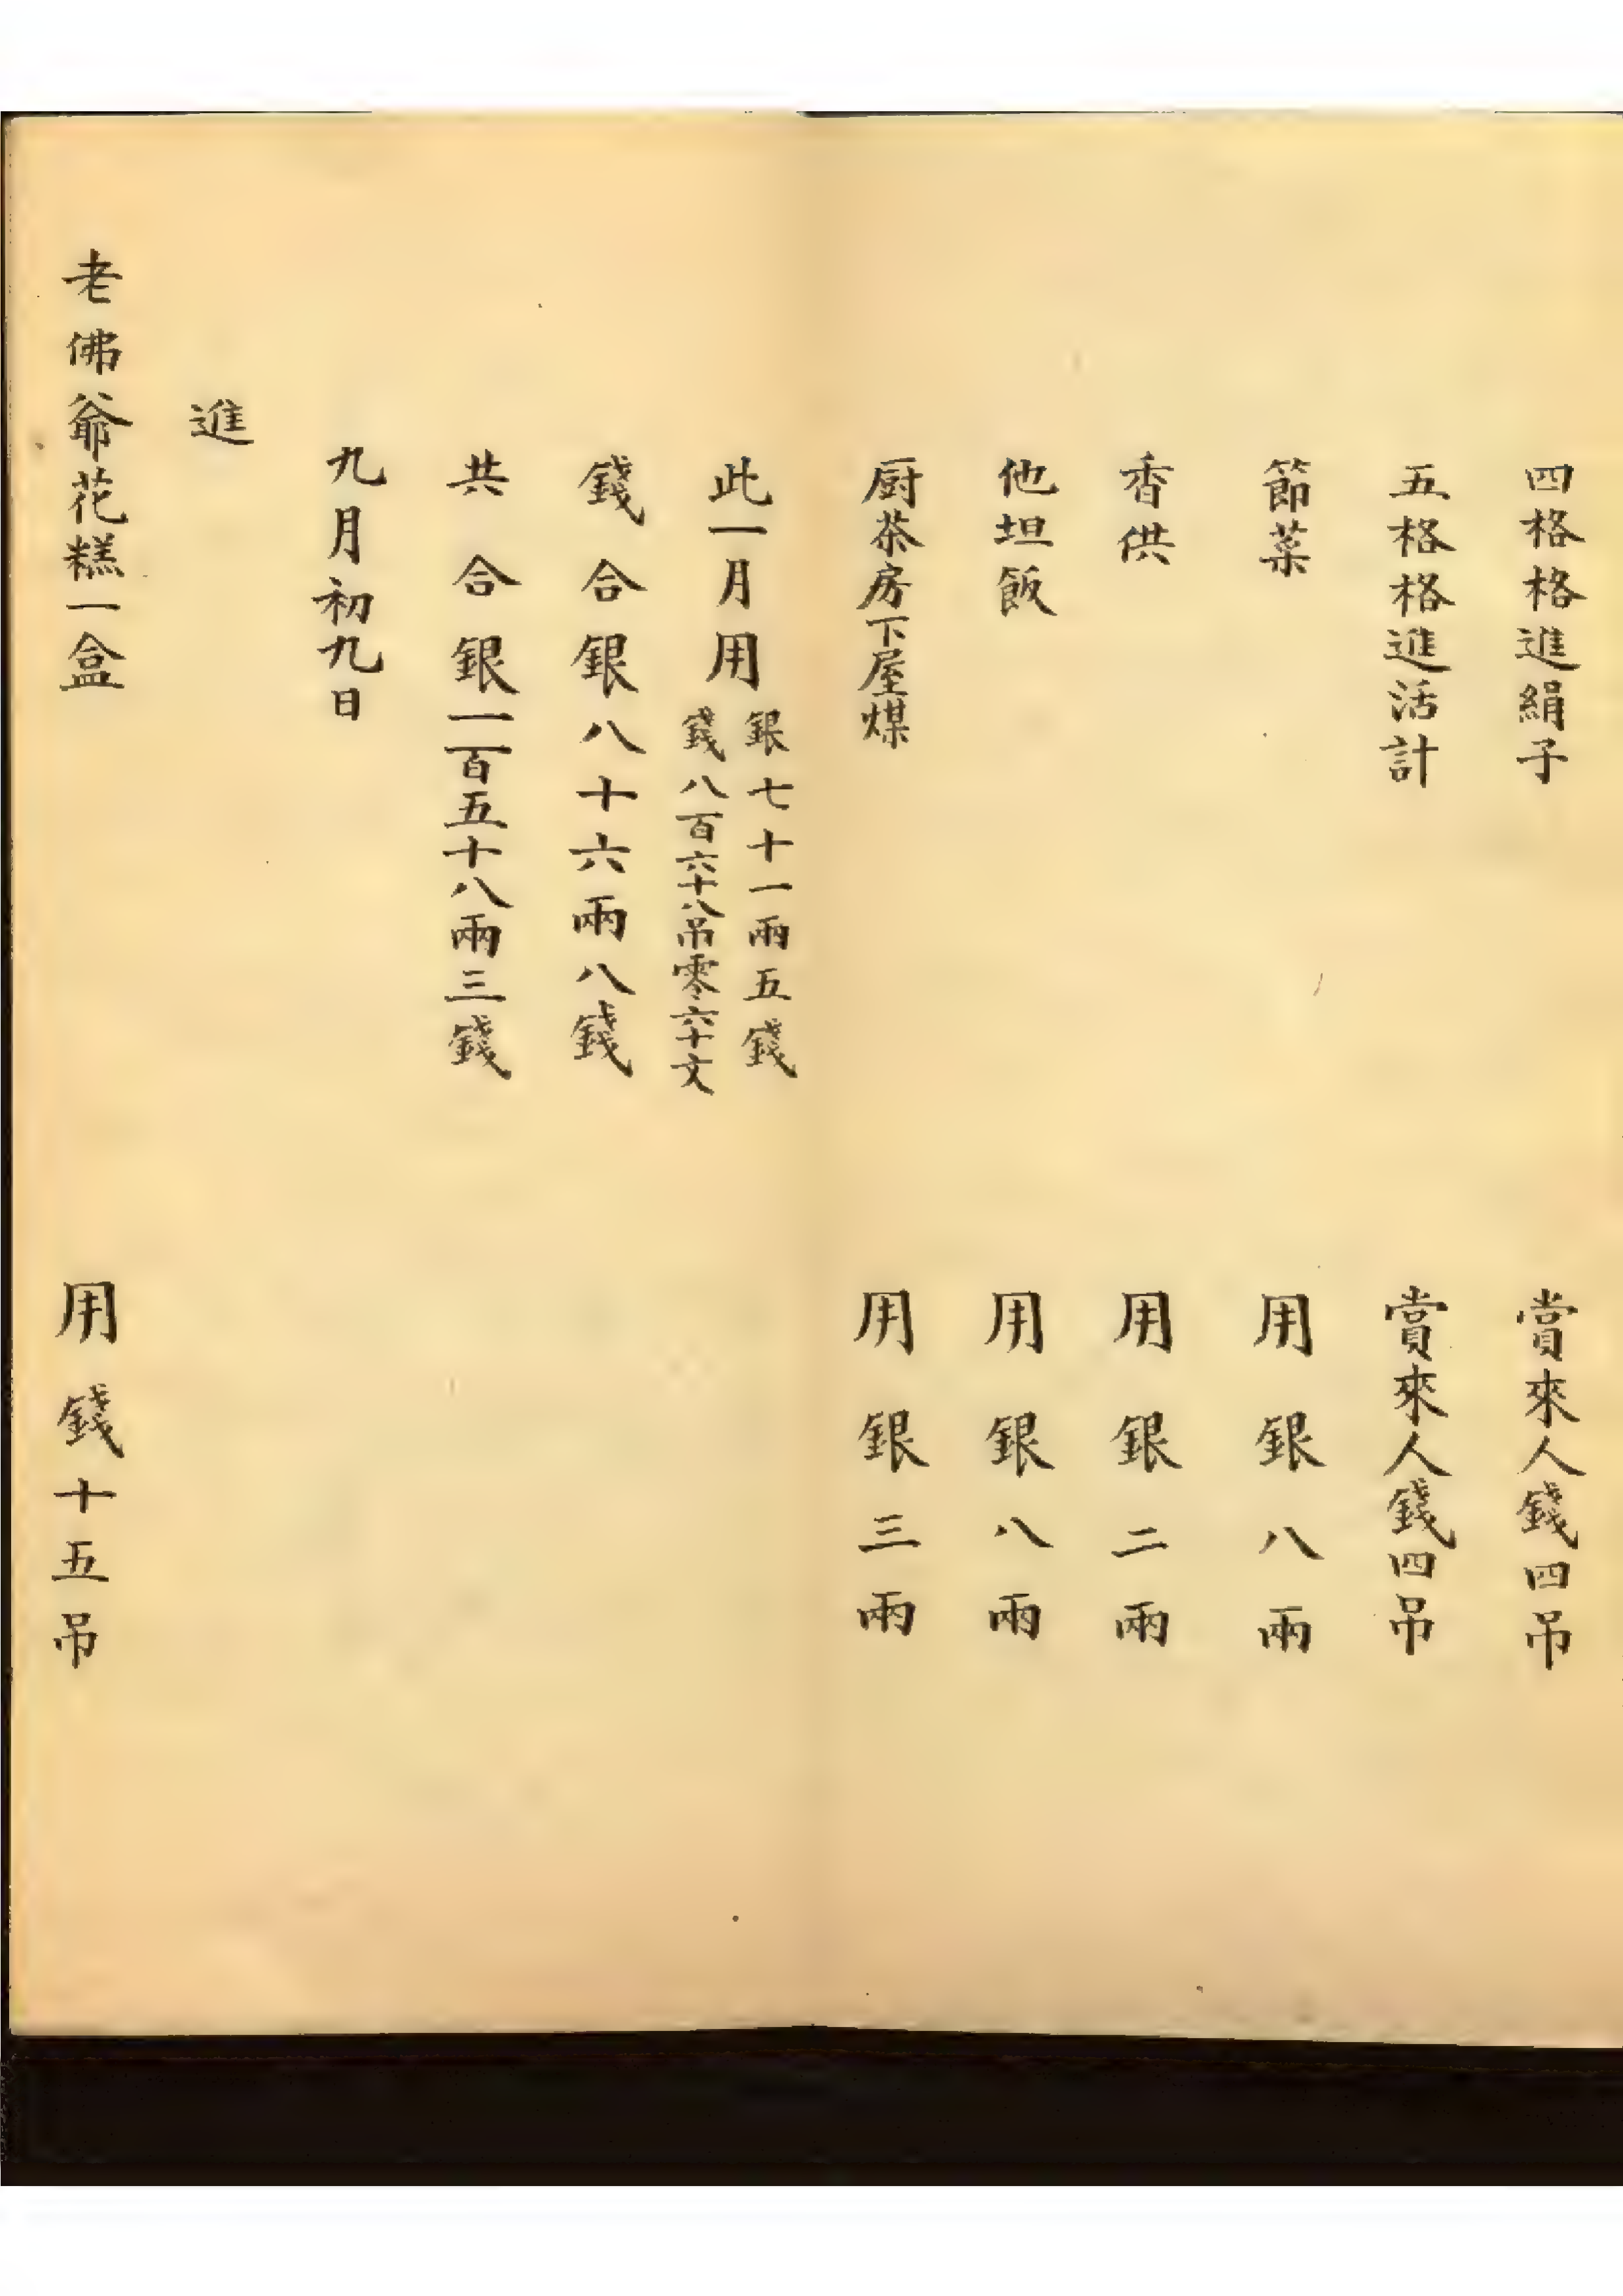 四格格進絹子 賞來人錢四吊
五格格進活計 賞來人錢四吊
節菜 用銀八兩
香供 用銀二兩
他坦飯 用銀八兩
厨茶房下屋煤 用銀三兩
此一月用
銀七十一兩五錢
錢八百六十八吊零六十文
錢合銀八十六兩八錢
共合銀一百五十八兩三錢
九月初九日
進
老佛爺花糕一盒 用錢十五吊